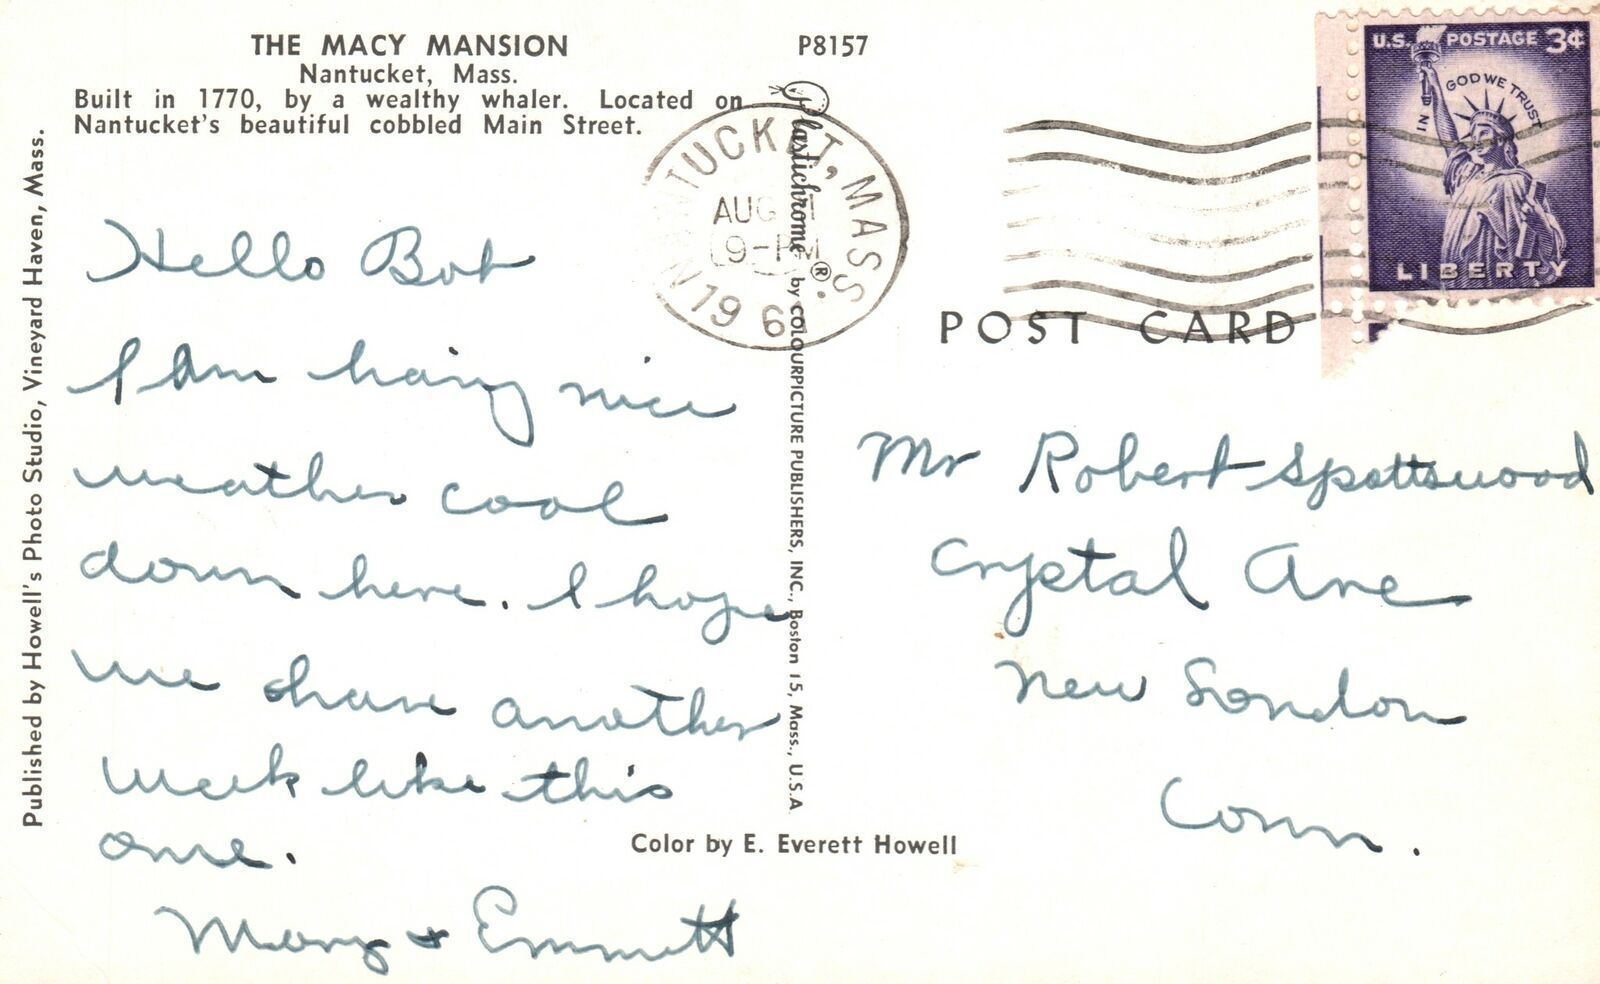 THE MACY MANSION
Nantucket, Mass.
Built in 1770, by a wealthy whaler. Located on
Nantucket's beautiful cobbled Main Street.
P8157
Published by Howell's Photo Studio, Vineyard Haven, Mass.
Hello Bob
I Am having nice
weather cool
down here. I hope
we have another
week like this
one.
Mary & Emmett
Plastichrome® by COLOURPICTURE PUBLISHERS, INC., Boston 15, Mass., U.S.A
Color by E. Everett Howell
NANTUCKET, MASS.
AUG
9-PM
196
U.S. POSTAGE 3¢
IN GOD WE TRUST
LIBERTY
POST CARD
Mr Robert Spottswood
Crystal Ave
New London
Conn.